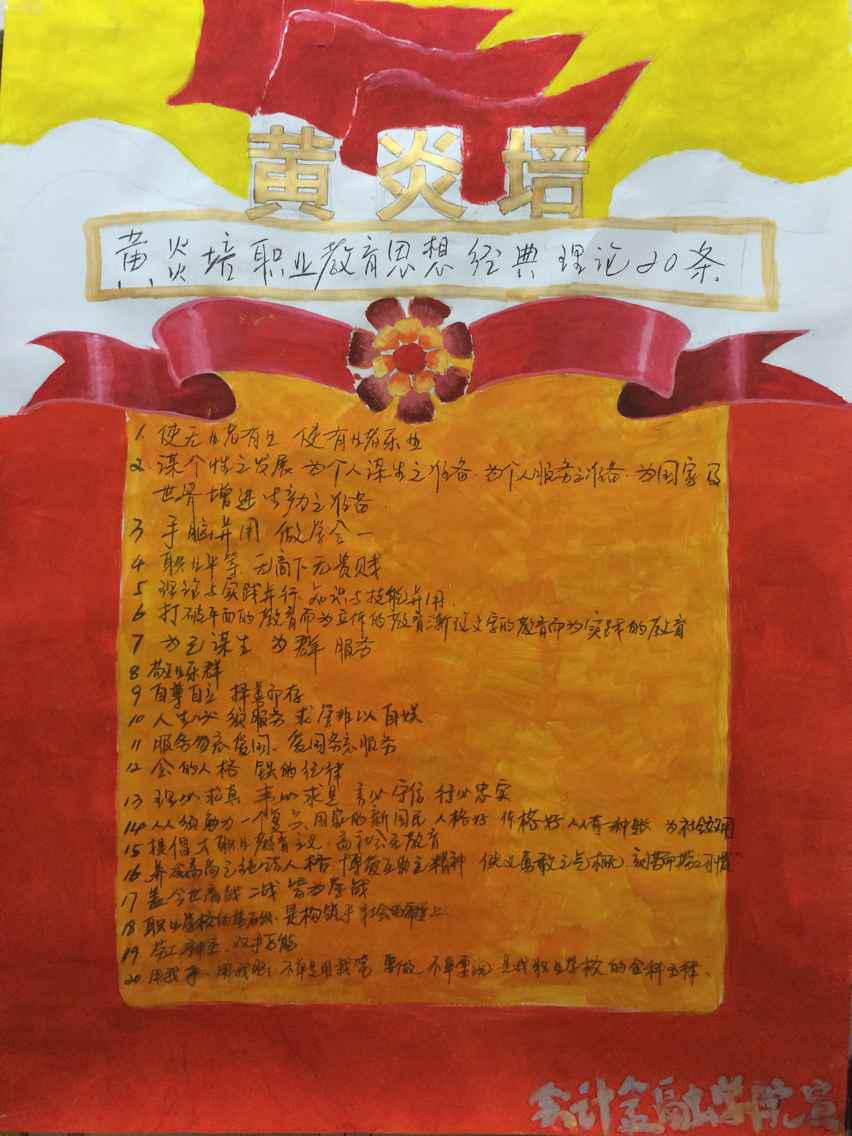 黄炎培
黄炎培职业教育思想经典理论20条
1. 使无业者有业 使有业者乐业
2. 谋个性之发展 为个人谋生之准备.为个人服务之准备.为国家及
世界增进生产力之准备.
3 手脑并用 做学合一
4 职业平等 无高下无贵贱
5 理论与实践并行 知识与技能并用.
6 打破平面的教育而为立体的教育 渐改文字的教育而为实践的教育
7 为己谋生 为群服务
8 敬业乐群
9 自尊自立 择善而存
10 人生必须服务 求学非以自娱
11 服务勿忘爱国.爱国务忘服务
12 金的人格 铁的纪律
13 理必求真 事必求是 言必守信 行必忠实
14 人人须勉力一个复兴国家的新国民 人格好 体格好 人人有一种 为社会效用
15 提倡大职业教育主义.高社会化教育
16 养成高尚之统治人格 博爱互助之精神 侠义勇敢之气概 刻苦耐劳之习惯
17 盖今世商战 工战 皆为学战
18 职业学校的基石 是构筑于社会的上
19 劳工神圣.双手万能
20 用我手.用我脑 不单是用我笔 要做.不单要说 是我职业学校的金科玉律.
会计金融学院宣